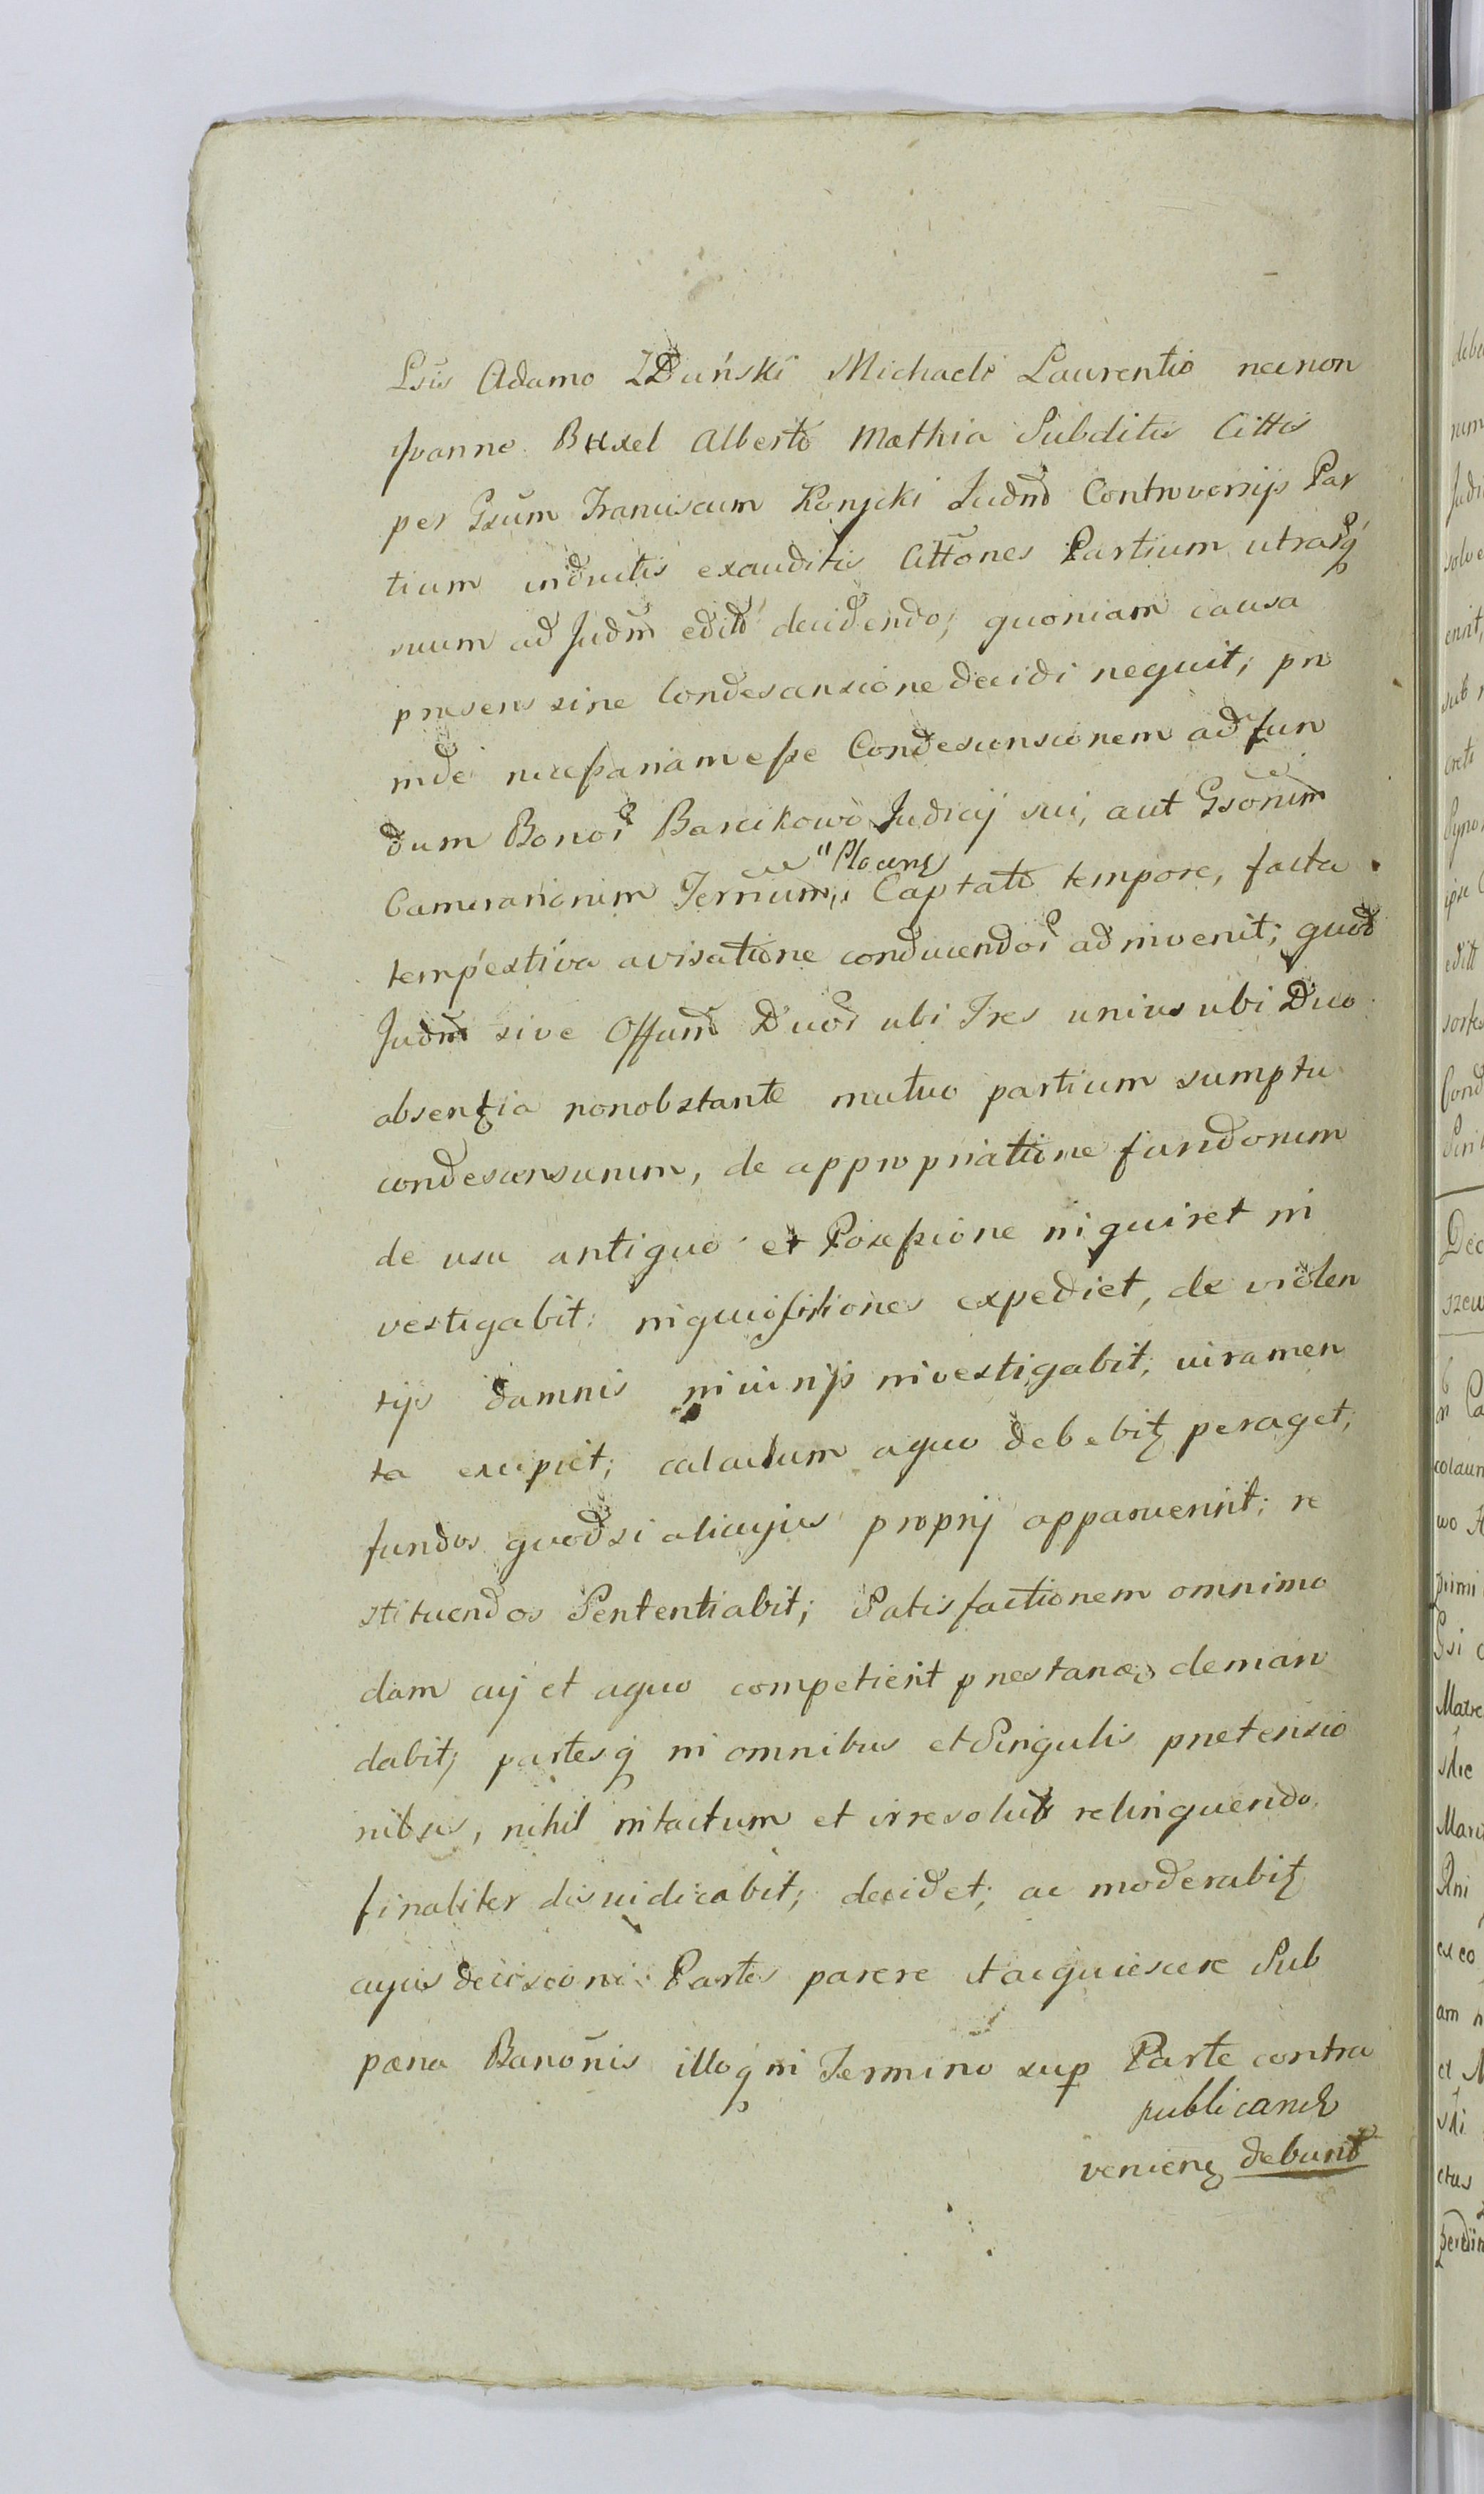 Lsis Adamo Zduński Michaeli Laurentio necnon
Joanne Buxel Alberto Mathia Subditis Cittis
per Gsum Franciscum Konycki Judm Controversijs Par
tium inductis exauditis Cittones Partium utrarq
suum ad Judm edito decidendo; quoniam causa
presens sine Condescensione decidi nequit; pro
inde necessariam esse Condescensionem ad fun
dum Bonor Barcikowo Judicij sui, aut Gsorum
Camerariorum Terrium, "Plocens
Captato tempore, facta
tempestiva avisatione conducendor adinvenit; quod
Judm sive Offum Duor ubi Tres unius ubi Duo
absentia nonobstante mutuo partium sumptu
condescensurum, de appropriatione fundorum
de usu antiquo et Possessione inquiret in
vestigabit: inquisitiones expediet, de violen
tijs damnis injurijs investigabit; juramen
ta excipiet; calculum a quo debebit peraget;
fundos quodsi alicujus proprij apparuerint; re
stituendos Sententiabit; Satisfactionem omnimo
dam cuj et a quo competierit prestand deman
dabit, partesq in omnibus et Singulis pretensio
nibus, nihil intactum et irresolutum relinquendo
finaliter disjudicabit; decidet; ac moderabit
cujus decisioni Partes parere et acquiescere Sub
pœna Bannonis illoq in Termino sup Parte contra
publicand
venien debunt